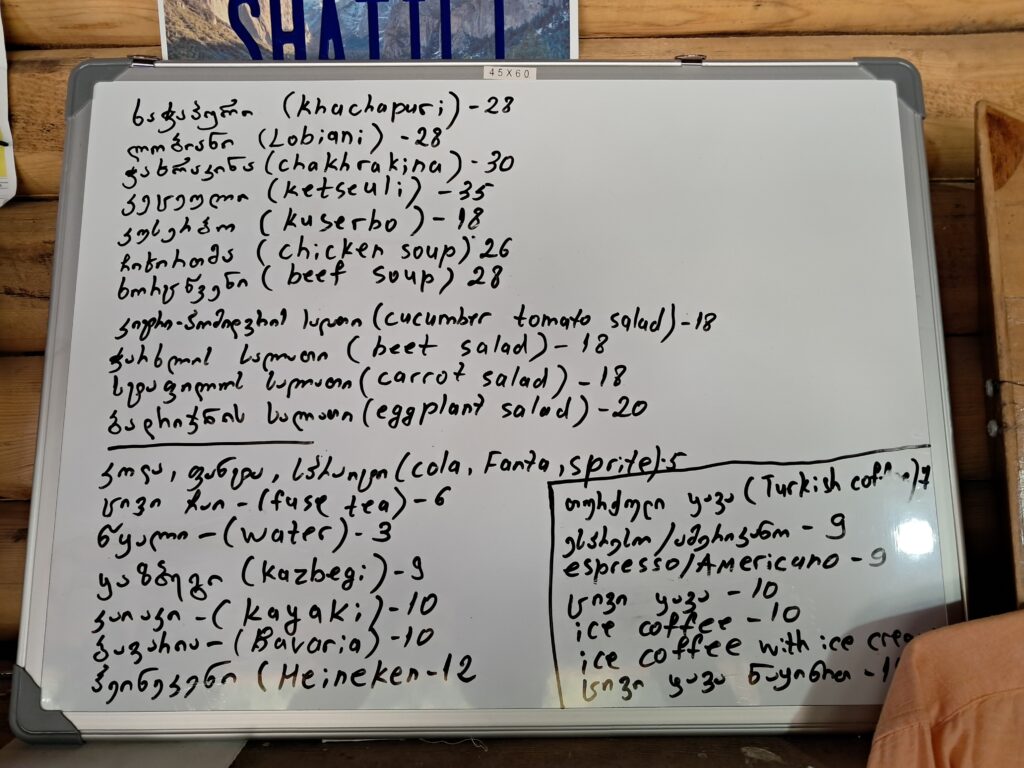 SHATILI
45X60
ხაჭაპური (khachapuri) - 28
ლობიანი (Lobiani) - 28
ჭახრაკინა (chakhrakina) - 30
კეცეული (ketseuli) - 35
კუსერბო (kuserbo) - 18
ჩიხირთმა (chicken soup) 26
ხორცნვენი (beef soup) 28
კიტრი-პომიდვრის სალათი (cucumber tomato salad) - 18
ჭარხლის სალათი (beet salad) - 18
სტაფილოს სალათი (carrot salad) - 18
ბადრიჯნის სალათი (eggplant salad) - 20
კოლა, ფანტა, სპრაიტი (cola, Fanta, sprite) - 5
ცივი ჩაი - (fuse tea) - 6
წყალი - (water) - 3
ყაზბეგი (kazbegi) - 9
კაიაკი - (kayaki) - 10
ბავარია - (Bavaria) - 10
ჰეინეკენი (Heineken - 12
თურქული ყავა (Turkish coffee) 7
ესპრესო / ამერიკანო - 9
espresso/Americano - 9
ცივი ყავა - 10
ice coffee - 10
ice coffee with ice
ცივი ყავა ნაყინით -